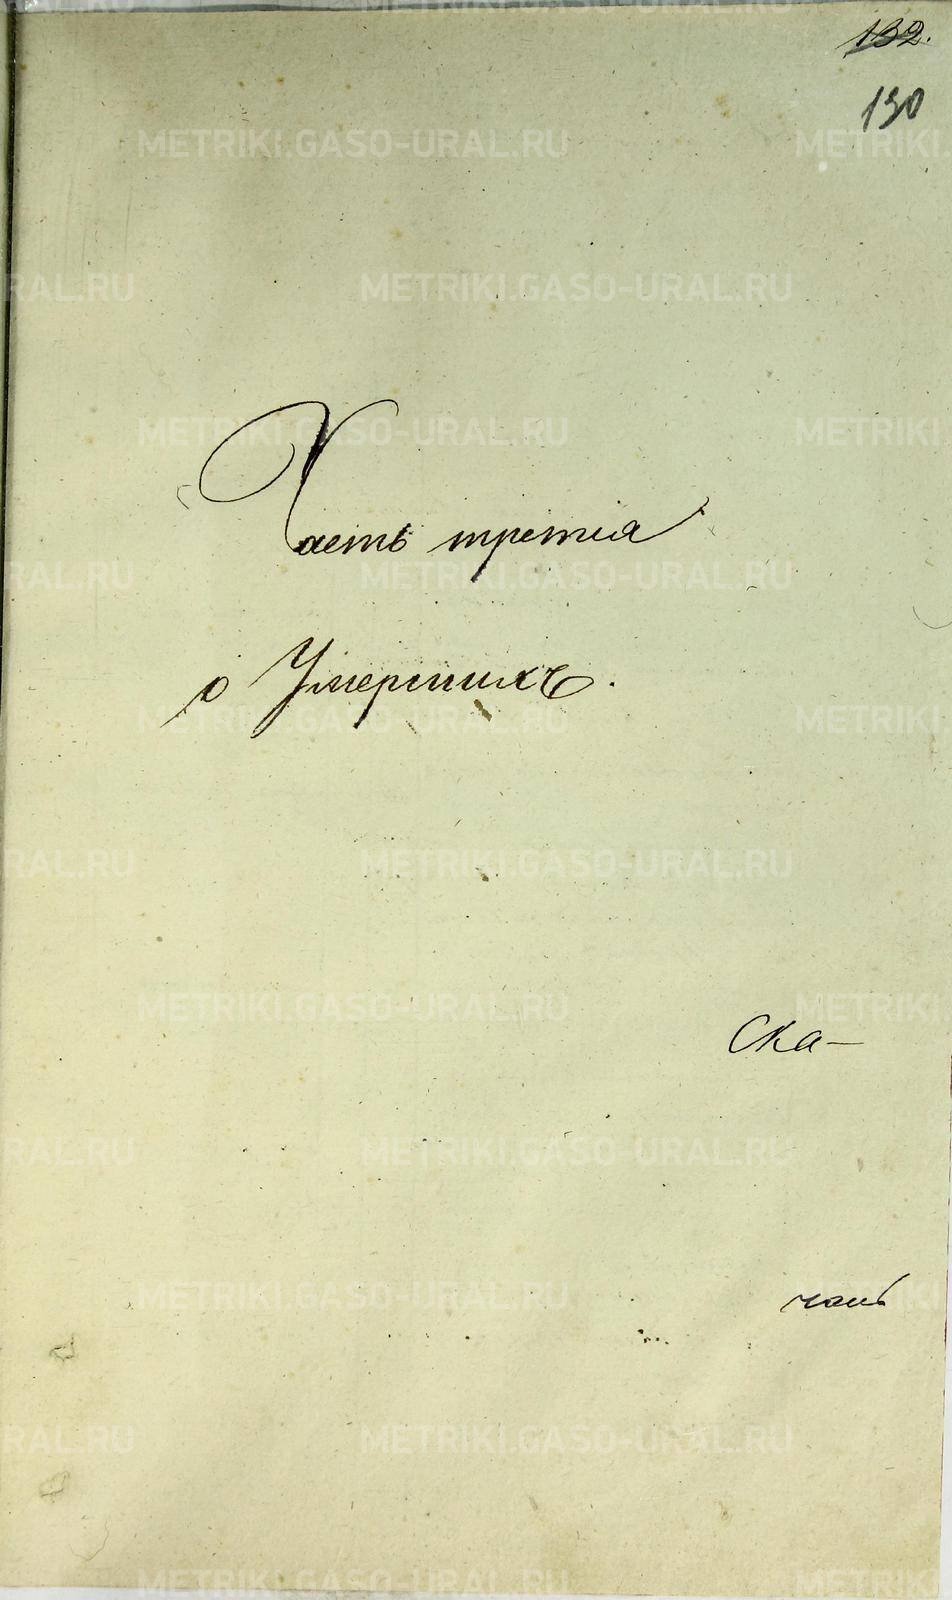 132.
130
Часть третія
о Умершихъ.
Ска-
METRIKI.GASO-URAL.RU